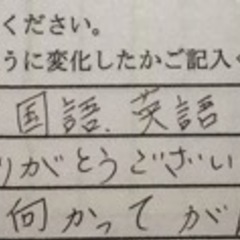 ください。
うに変化したかご記入く
国語、英語
りがとうござい
向かってが